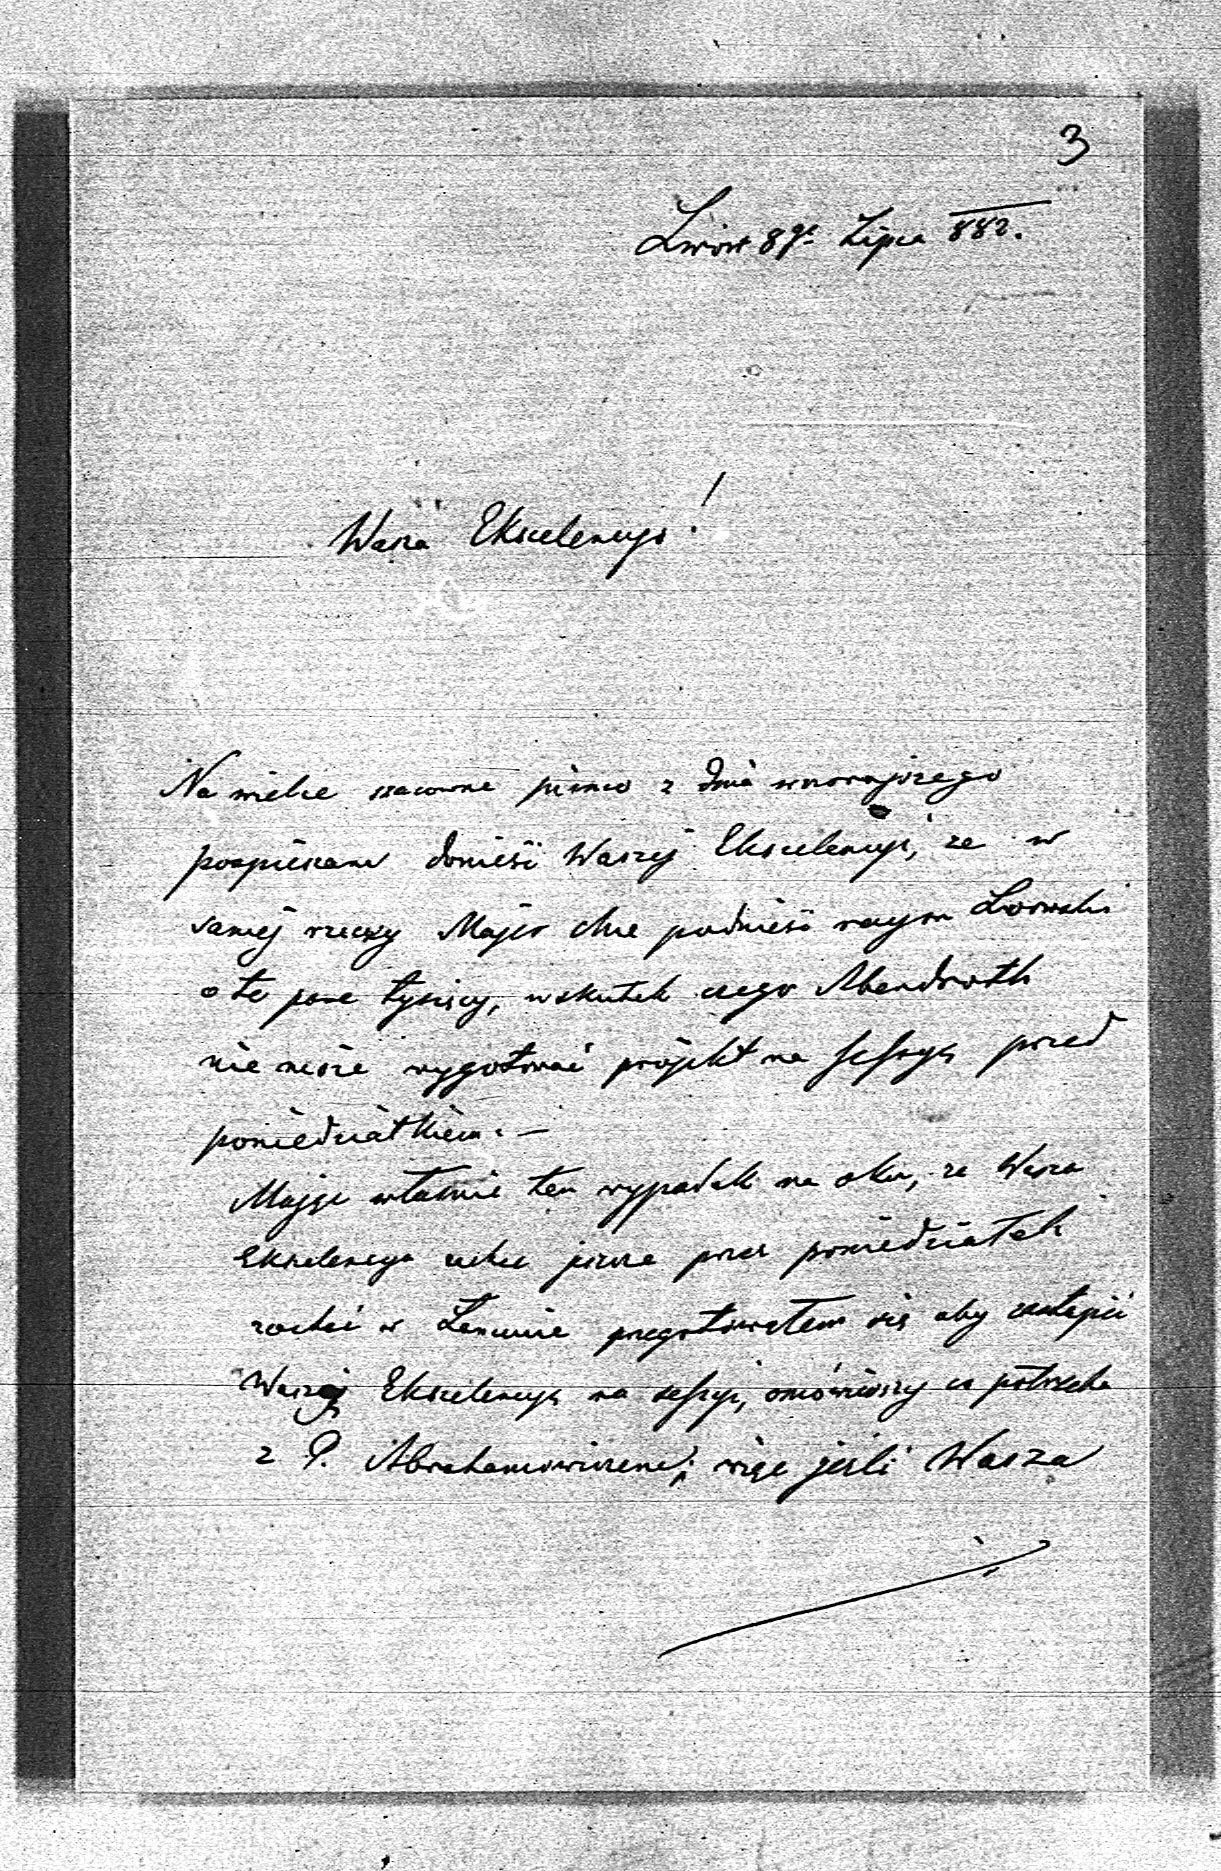 3
Lwów 8go Lipca 882.
Wasza Ekscelencyo!
Na wielce szacowne pismo z dnia wczorajszego
pospieszam donieść Waszej Ekscelencyi, że w
samej rzeczy Major chce podnieść czynsz Lwowski
o te parę tysięcy, wskutek czego Abendroth
nie może wygotować projekt na sessyę przed
poniedziałkiem. —
Mając właśnie ten wypadek na oku, że Wasza
Ekscelencya zechce jeszcze przez poniedziałek
zostać w przygotowałem się aby zastąpić
Waszej Ekscelencyę na sessyi, omówiwszy co potrzeba
z P. Abrahamowiczem; więc jeśli Wasza